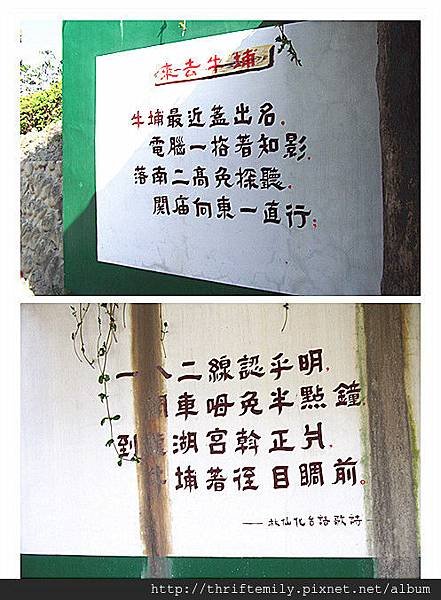 來去牛埔
牛埔最近蓋出名。
電腦一掿著知影。
落南二高免探聽。
關庙向東一直行。
一八二線認乎明。
車呣免半點鐘。
到 湖宮斡正爿。
埔著徑目睭前。
—— 北仙化台語 詩 —
http://thriftemily.pixnet.net/album